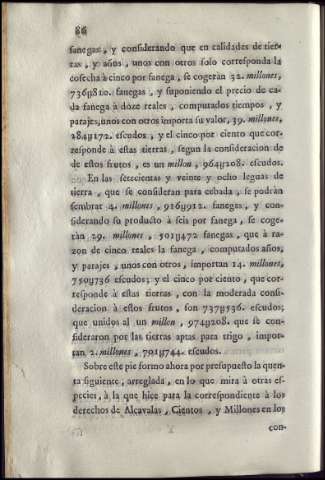 86
fanegas, y considerando que en calidades de tier-
ras, y años, unos con otros solo corresponda la
cosecha à cinco por fanega, se cogeràn 32. millones,
736y810. fanegas, y suponiendo el precio de ca-
da fanega à doze reales, computados tiempos, y
parajes, unos con otros importa su valor, 39. millones,
284y172. escudos, y el cinco por ciento que cor-
responde à estas tierras, segun la consideracion de
de estos frutos, es un millon, 964y208. escudos.
En las setecientas y veinte y ocho leguas de
tierra, que se consideran para cebada, se podràn
sembrar 4. millones, 916y912. fanegas, y con-
siderando su producto à seis por fanega, se coge-
ràn 29. millones, 501y472 fanegas, que à ra-
zon de cinco reales la fanega, computados años,
y parajes, unos con otros, importan 14. millones,
750y736 escudos; y el cinco por ciento, que cor-
responde à estas tierras, con la moderada consi-
deracion à estos frutos, son 737y536. escudos;
que unidos al un millon, 974y208. que se con-
sideraron por las tierras aptas para trigo, impor-
tan 2. millones, 701y744. escudos.
Sobre este pie formo ahora por presupuesto la quen-
ta siguiente, arreglada, en lo que mira à otras es-
pecies, à la que hice para la correspondiente à los
derechos de Alcavalas, Cientos, y Millones en los
con-